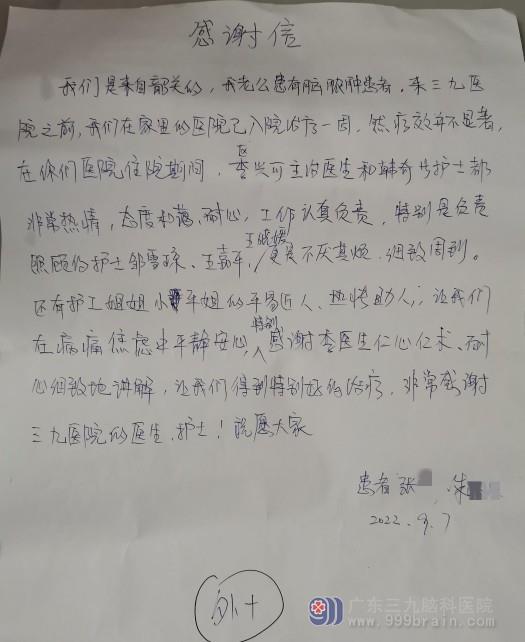 感谢信
我们是来自韶关的，我老公患有脑脓肿患者，来三九医
院之前，我们在家里的医院已入院治疗一周，然疗效并不显著，
在你们医院住院期间，区李兴可主治医生和韩奇共护士都
非常热情，态度和蔼、耐心，工作认真负责，特别是负责
照顾的护士邹雪球、王嘉平，王晓媛更是不厌其烦、细致周到。
还有护工姐姐小平姐的平易近人、热情助人，让我们
在病痛焦虑中平静安心，特别感谢李医生仁心仁术、耐
心细致地讲解，让我们得到特别好的治疗，非常感谢
三九医院的医生、护士！祝愿大家
患者 张 、朱
2022.9.7
广东三九脑科医院
www.999brain.com